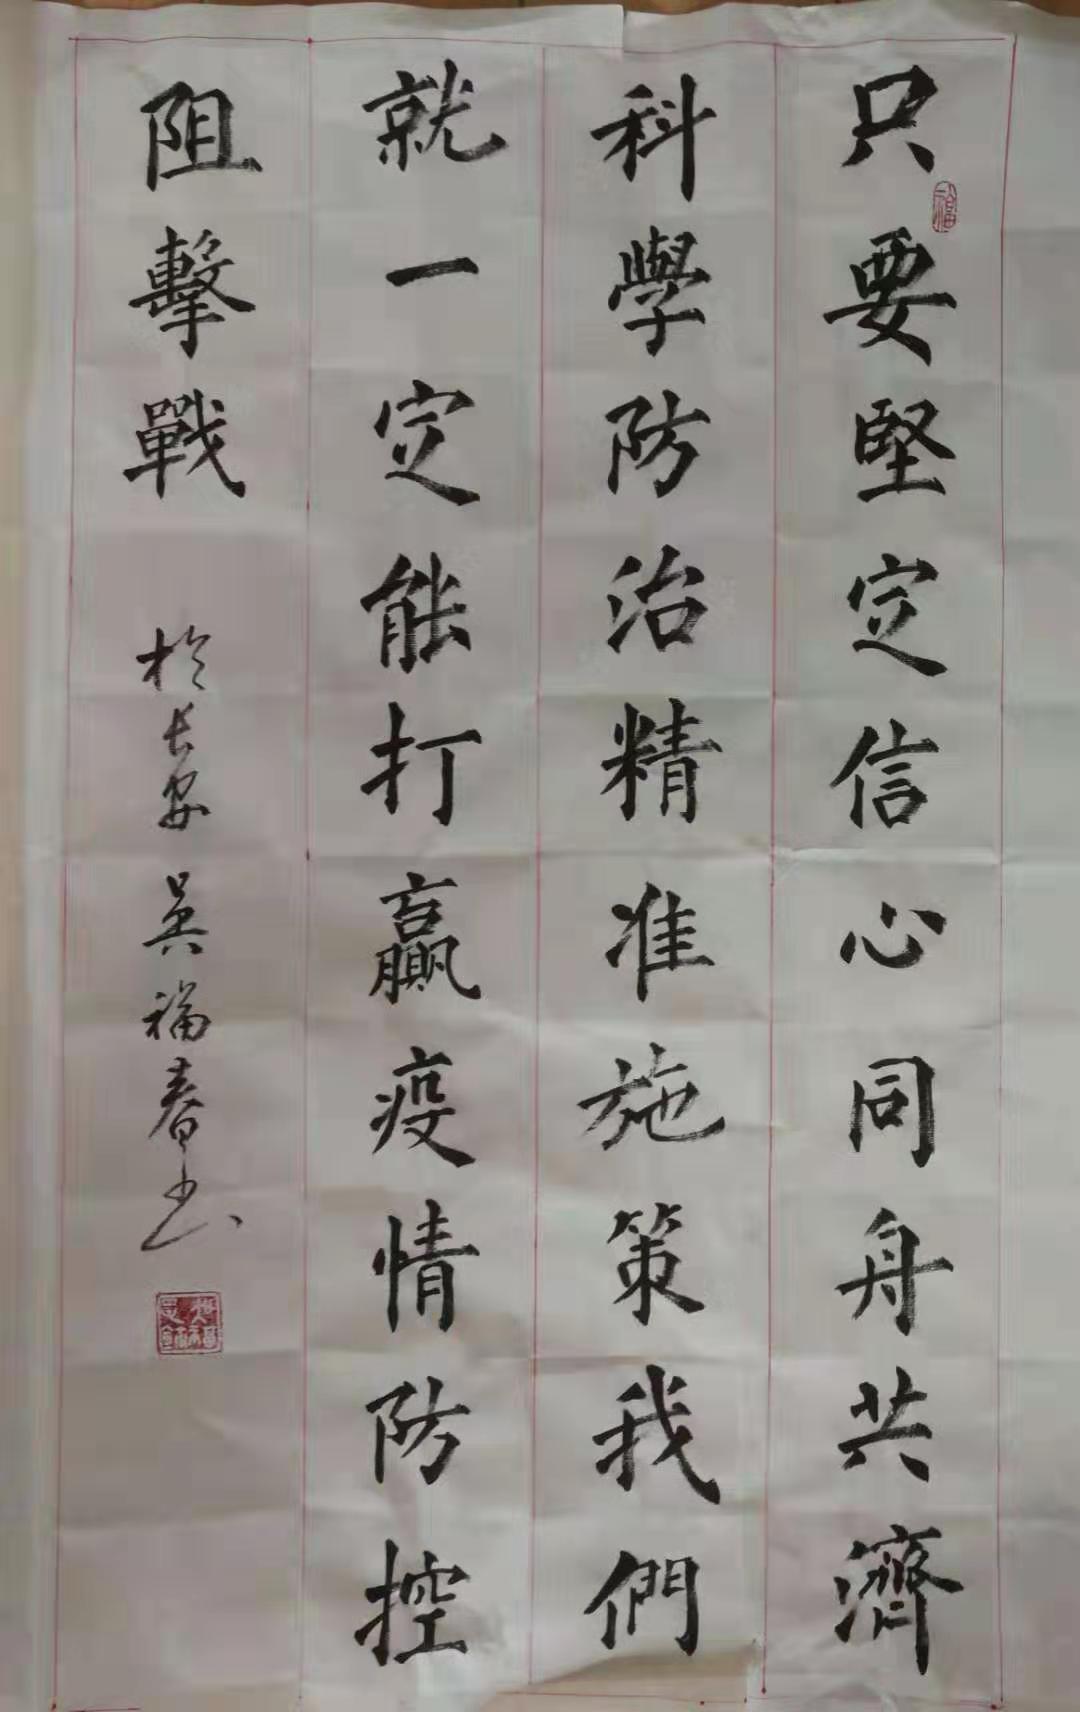 只要堅定信心同舟共濟
科學防治精准施策我們
就一定能打贏疫情防控
阻擊戰
於長安 吳福春书
福